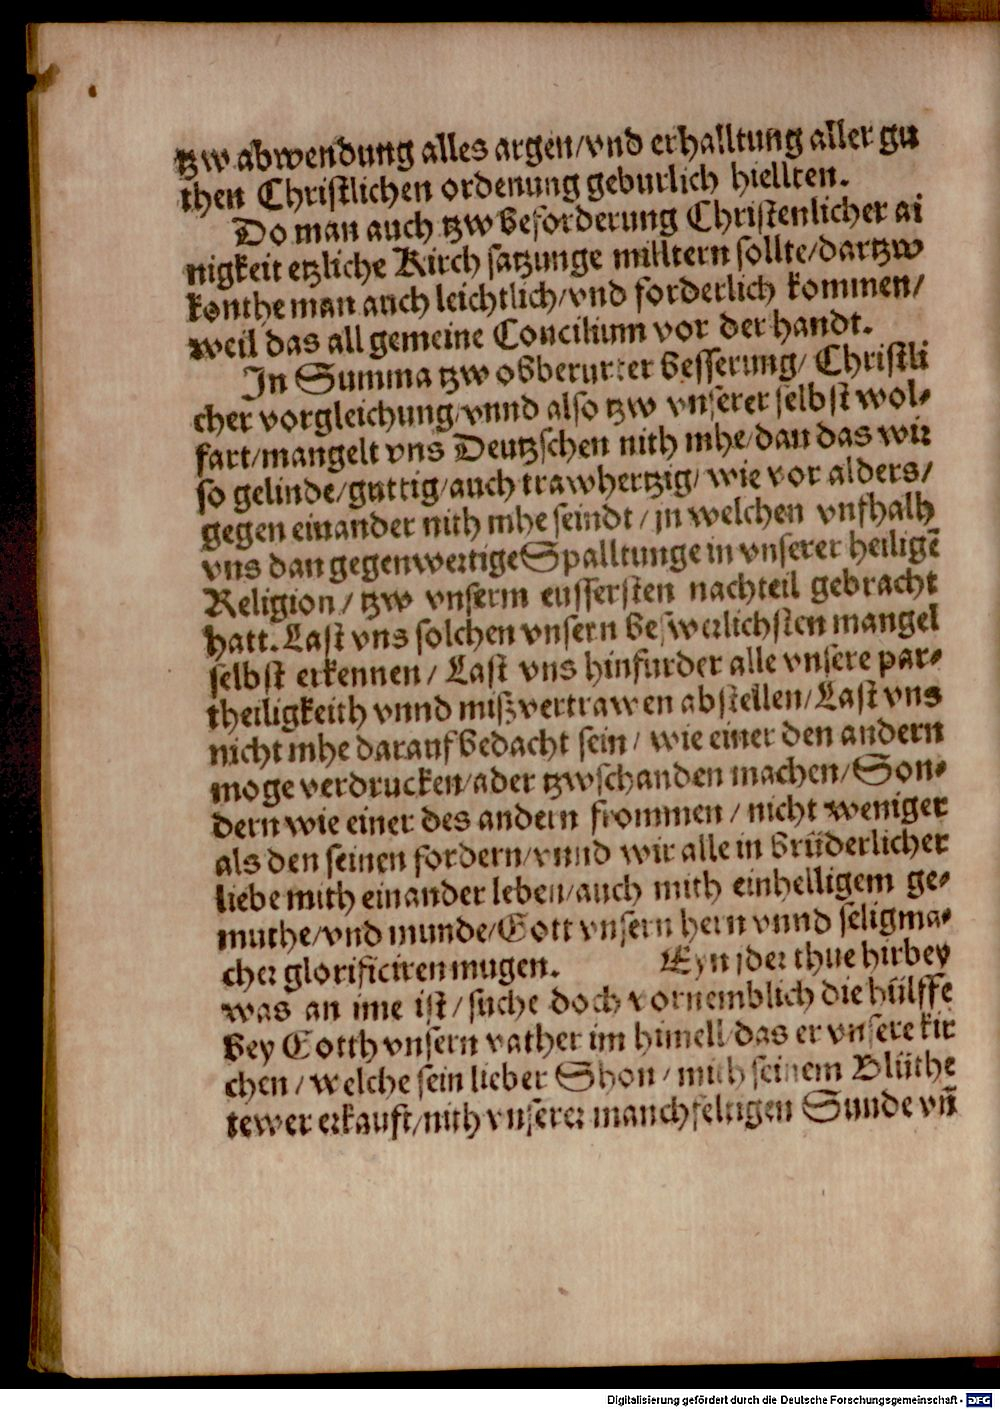 tzw abwendung alles argen/vnd erhalltung aller gu
then Christlichen ordenung geburlich hiellten.
Do man auch tzw beforderung Christenlicher ai
nigkeit etzliche Kirch satzunge milltern sollte/dartzw
konthe man auch leichtlich/vnd forderlich kommen/
weil das all gemeine Concilium vor der handt.
In Summa tzw obberurter besserung/ Christli
cher vorgleichung/vnnd also tzw vnserer selbst wol-
fart/mangelt vns Deutzschen nith mhe/dan das wir
so gelinde/guttig/auch trawhertzig/ wie vor alders/
gegen einander nith mhe seindt/ in welchen vnfhalh
vns dan gegenwertige Spalltunge in vnserer heiligē
Religion/ tzw vnserm eussersten nachteil gebracht
hatt. Last vns solchen vnsern beswerlichsten mangel
selbst erkennen/ Last vns hinfurder alle vnsere par-
theiligkeith vnnd miszvertrawen abstellen/Last vns
nicht mhe darauf bedacht sein/ wie einer den andern
moge verdrucken/ader tzwschanden machen/Son-
dern wie einer des andern frommen/ nicht weniger
als den seinen fordern/vnnd wir alle in brüderlicher
liebe mith einander leben/auch mith einhelligem ge-
muthe/vnd munde/Gott vnsern hern vnnd seligma-
cher glorificiren mugen. Eyn ider thue hirbey
was an ime ist/suche doch vornemblich die hülffe
bey Gotth vnsern vather im himell/das er vnsere kir
chen/welche sein lieber Shon/mith seinem Blüthe
tewer erkauft/nith vnserer manchfeltigen Sunde vn̄
Digitalisierung gefördert durch die Deutsche Forschungsgemeinschaft - DFG